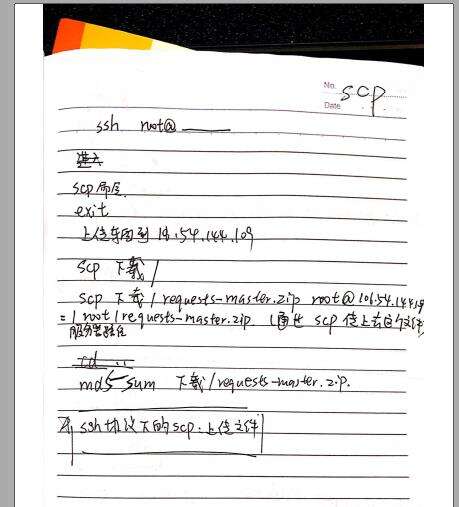 No.
scp
Date
ssh root@ ______
scp 命令
exit
上传东西到
scp 下载/
scp 下载/requests-master.zip root@106.54.144.109
=/root/requests-master.zip. (通过 scp 传上去的文件
服务器路径
cd ..
md5sum 下载/requests-master.zip.
ssh协议下的scp.上传文件